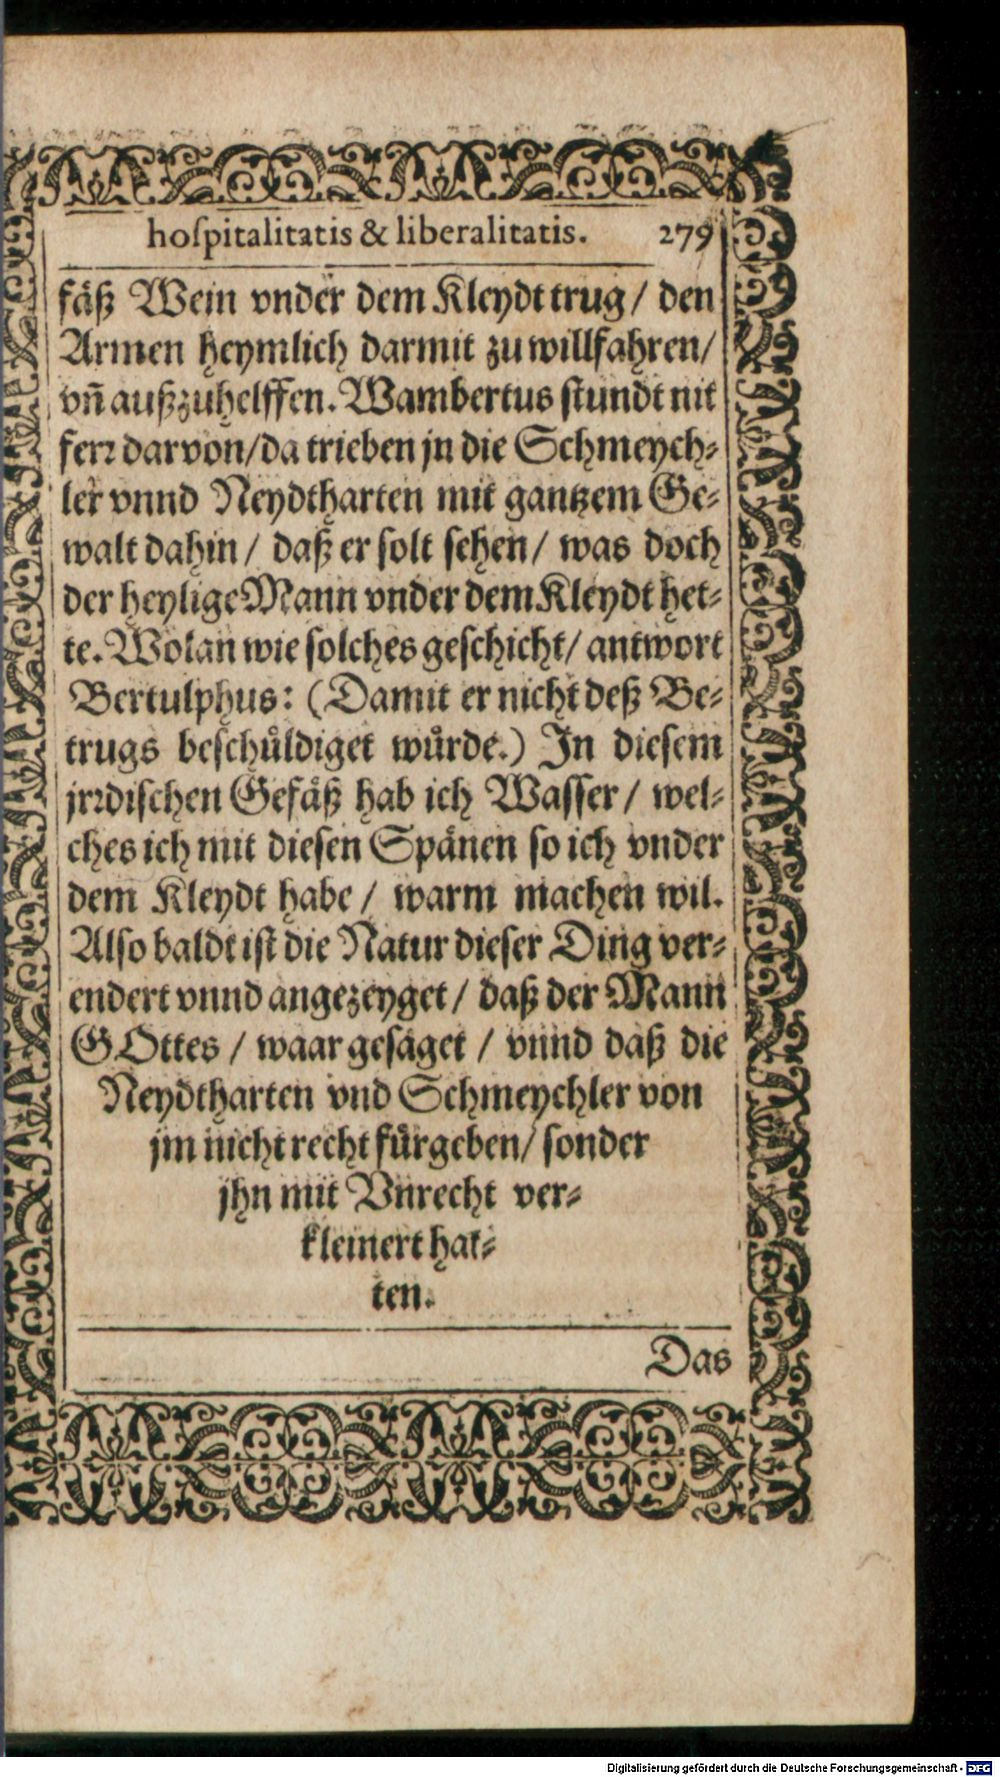 hoſpitalitatis & liberalitatis. 279
fäß Wein vnder dem Kleydt trug / den
Armen heymlich darmit zu willfahren /
vñ außzuhelffen. Wambertus ſtundt nit
ferꝛ darvon / da trieben jn die Schmeych⸗
ler vnnd Neydtharten mit gantzem Ge⸗
walt dahin / daß er ſolt ſehen / was doch
der heylige Mann vnder dem Kleydt het⸗
te. Wolan wie ſolches geſchicht / antwort
Bertulphus: (Damit er nicht deß Be⸗
trugs beſchuͤldiget wuͤrde.) In dieſem
jrꝛdiſchen Gefäß hab ich Waſſer / wel⸗
ches ich mit dieſen Spänen ſo ich vnder
dem Kleydt habe / warm machen wil.
Alſo baldt iſt die Natur dieſer Ding ver⸗
endert vnnd angezeyget / daß der Mann
GOttes / waar geſaget / vnnd daß die
Neydtharten vnd Schmeychler von
jm nicht recht fuͤrgeben / ſonder
jhn mit Vnrecht ver⸗
kleinert hat⸗
ten.
Das
Digitalisierung gefördert durch die Deutsche Forschungsgemeinschaft - DFG